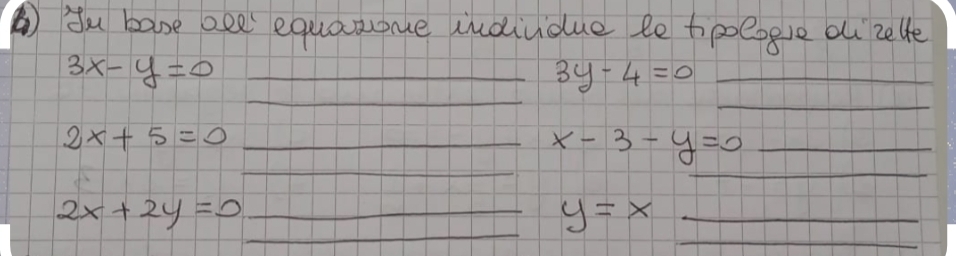 4) In base all'equazione individua le tipologie di rette
3x - y = 0 3y - 4 = 0
2x + 5 = 0 x - 3 - y = 0
2x + 2y = 0 y = x